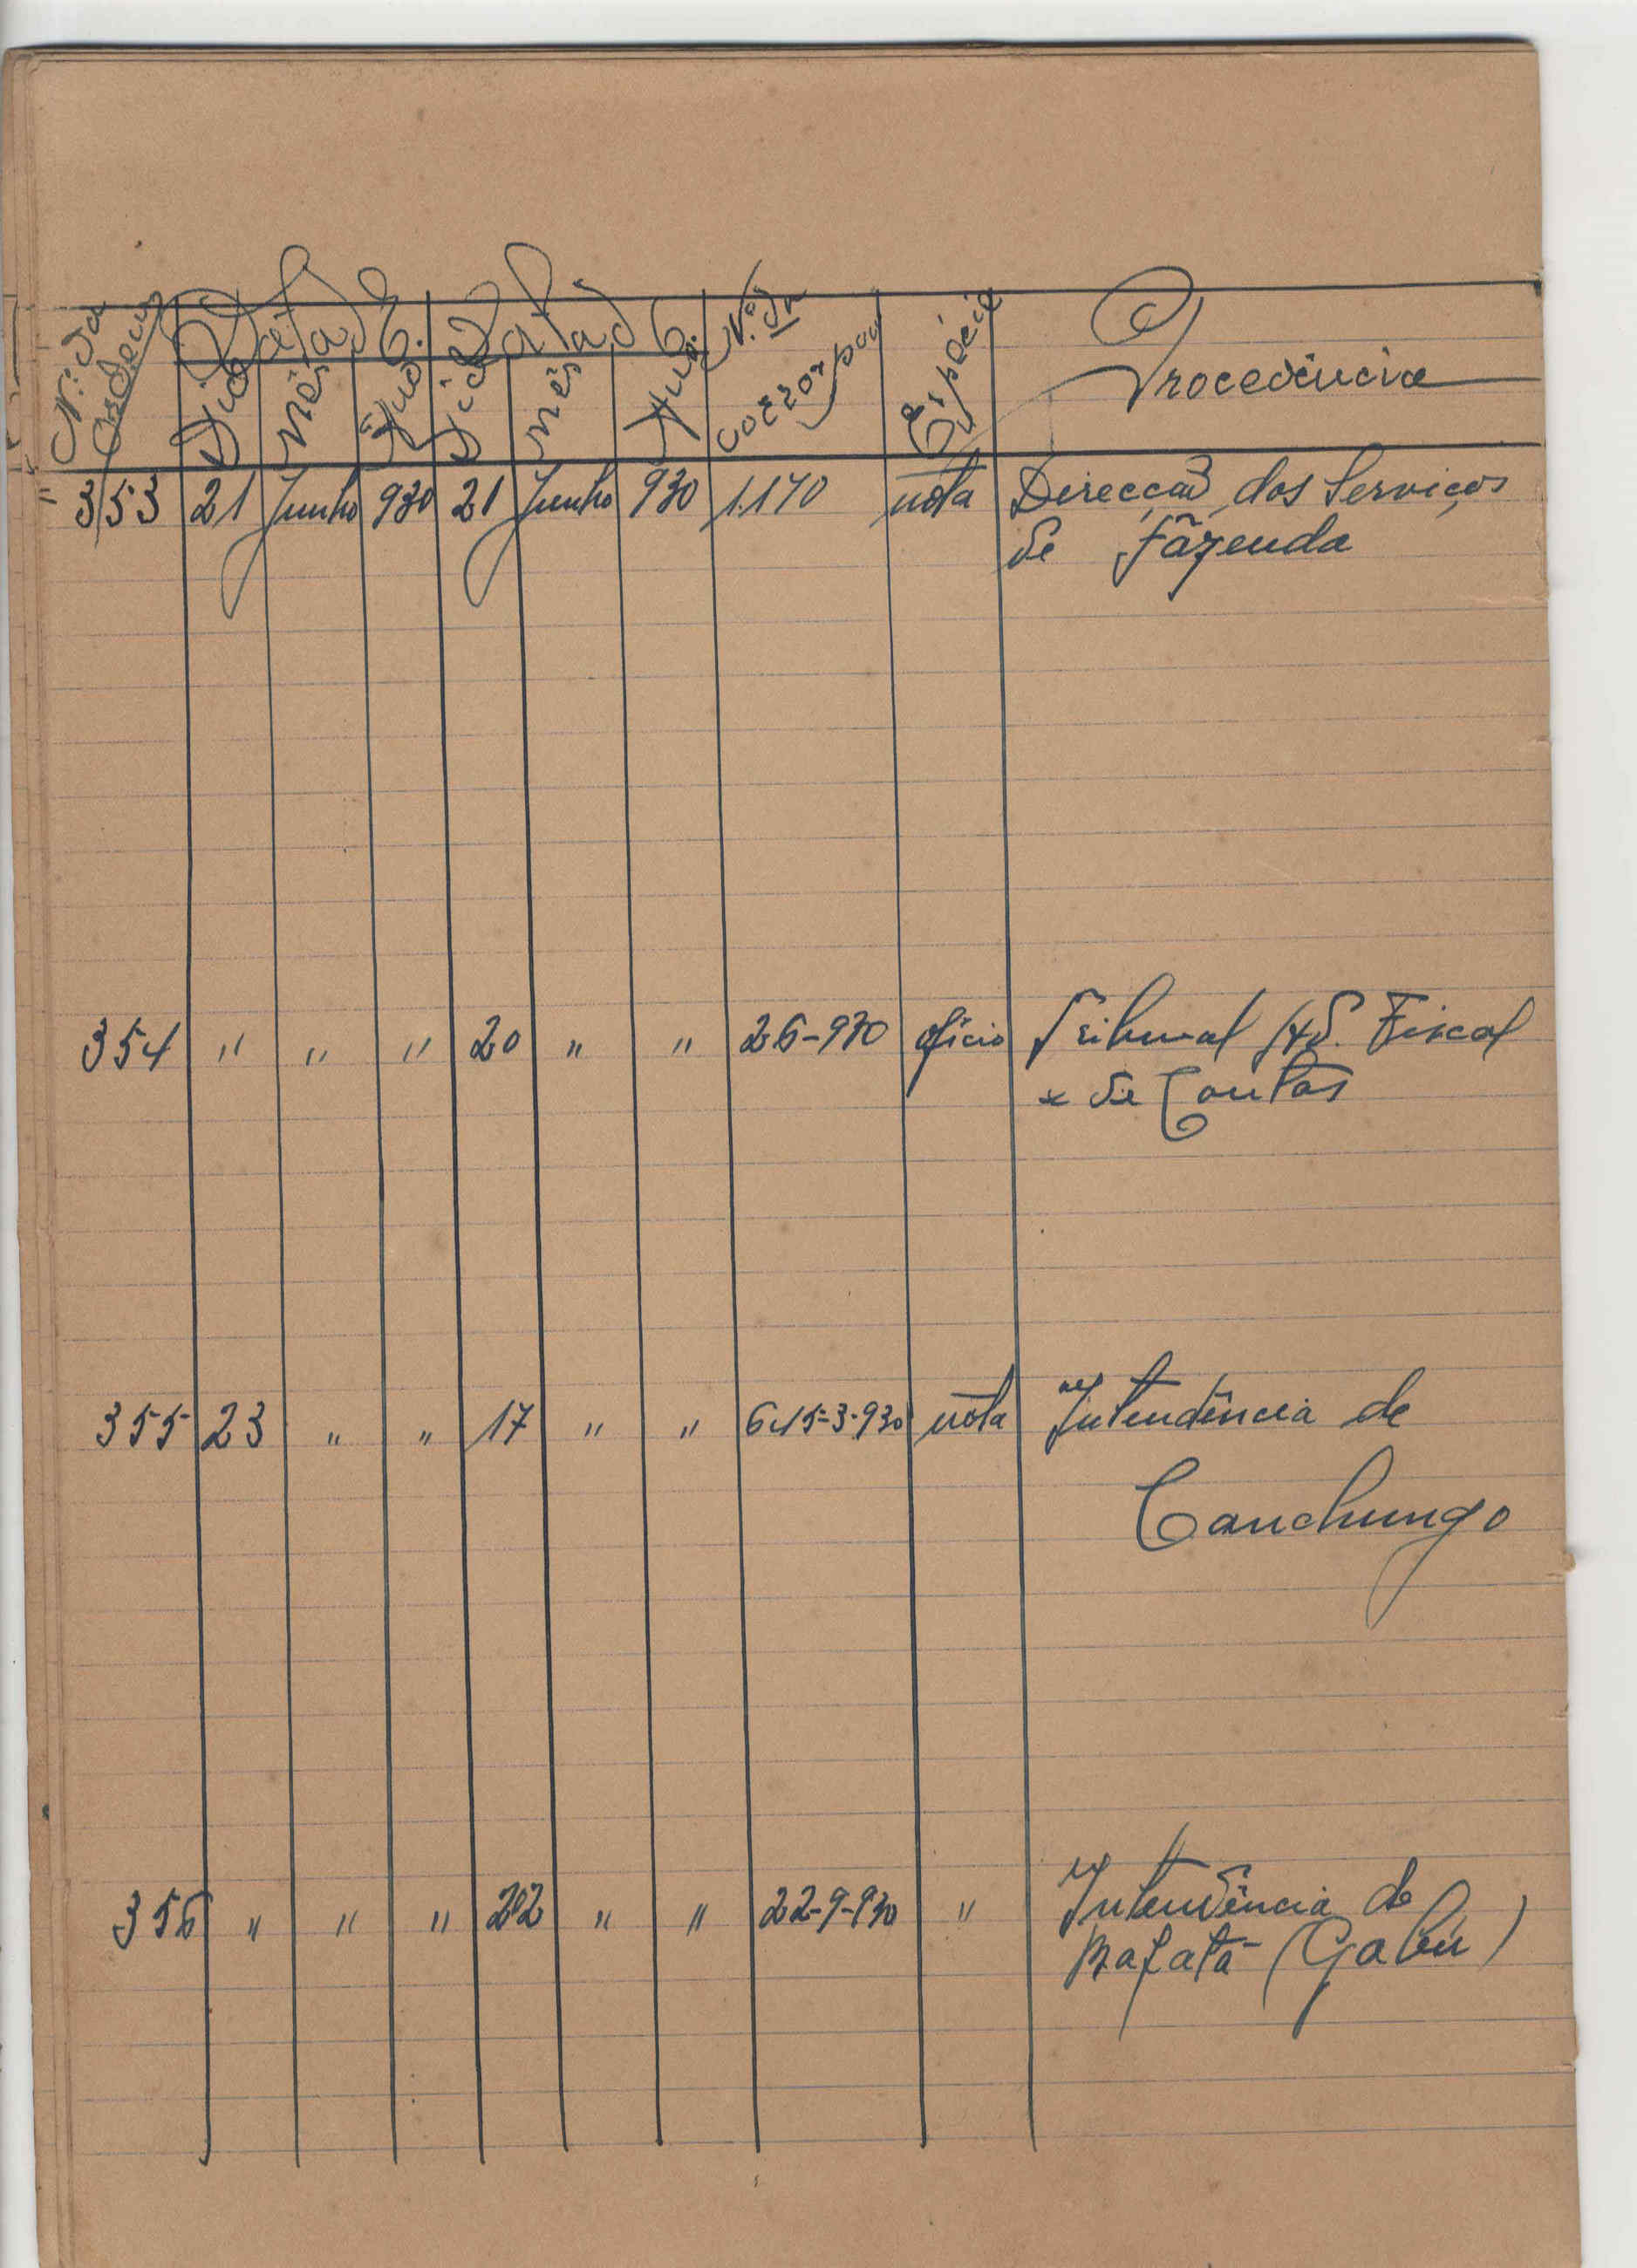 N.º da Ordem Data E. Data E. N.º da corresp. Espécie Procedência
Dia Mês Ano Dia Mês Ano
353 21 Junho 930 21 Junho 930 1.170 nota Direcção dos Serviços
de Fazenda
354 " " " 20 " " 26-930 ofício Tribunal Fiscal
e de Contas
355 23 " " 17 " " 615-3-930 nota Intendência de
Canchungo
356 " " " 22 " " 22-9-930 " Intendência de
Bafatá (Gabú)